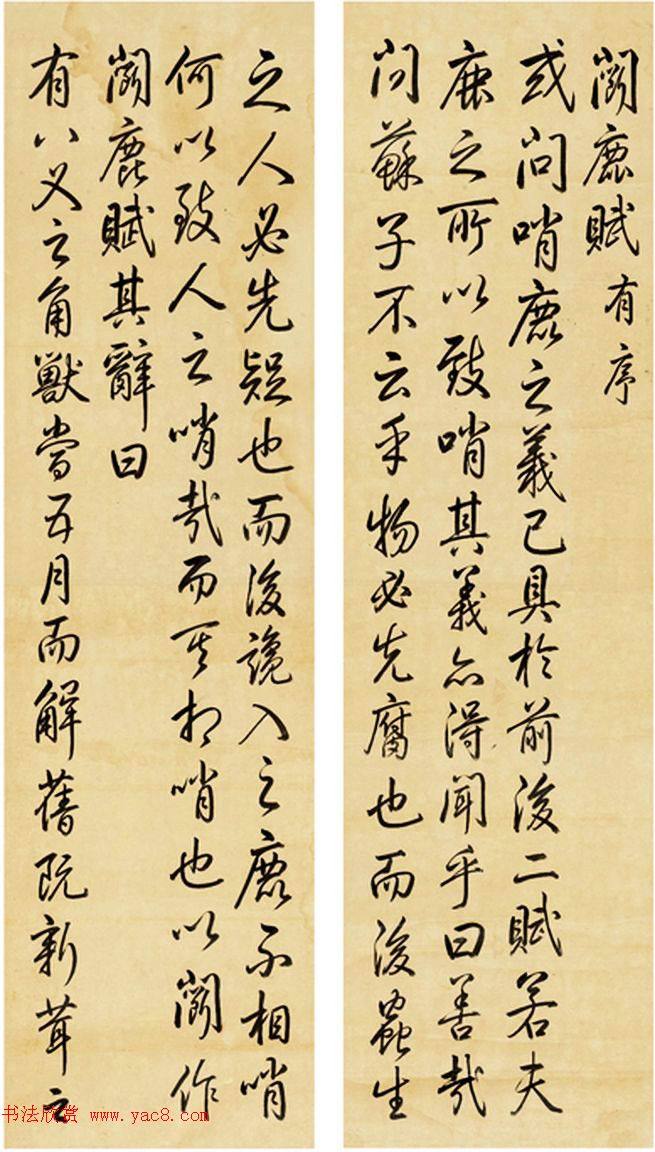 鬭鹿賦有序
或問哨鹿之義已具於前後二賦若夫
鹿之所以致哨其義亦得聞乎曰善哉
問蘇子不云乎物必先腐也而後蟲生
之人必先疑也而後讒入之鹿不相哨
何以致人之哨哉而其相哨也以鬭作
鬭鹿賦其辭曰
有八叉之角獸當五月而解舊既新茸之
书法欣赏 www.yac8.com